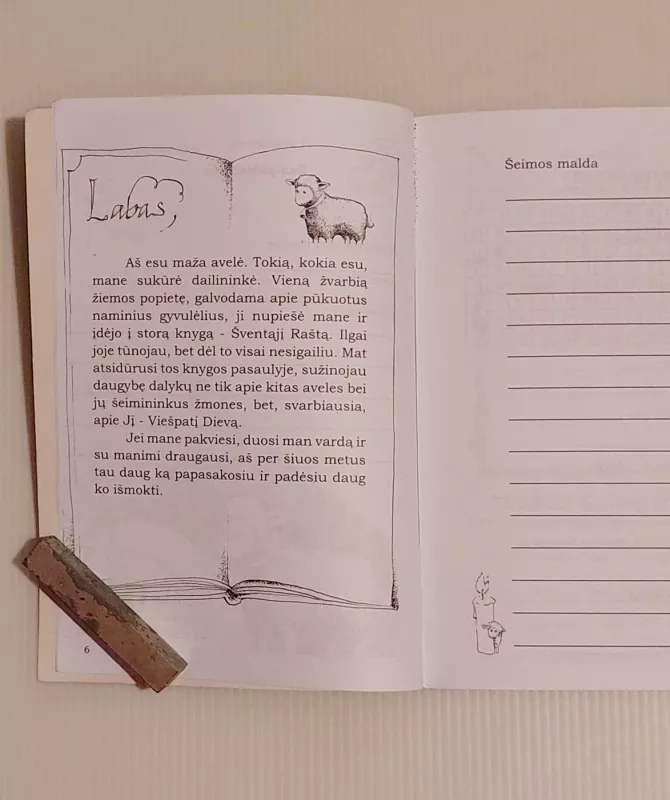 Labas,
Aš esu maža avelė. Tokią, kokia esu,
mane sukūrė dailininkė. Vieną žvarbią
žiemos popietę, galvodama apie pūkuotus
naminius gyvulėlius, ji nupiešė mane ir
įdėjo į storą knygą - Šventąjį Raštą. Ilgai
joje tūnojau, bet dėl to visai nesigailiu. Mat
atsidūrusi tos knygos pasaulyje, sužinojau
daugybę dalykų ne tik apie kitas aveles bei
jų šeimininkus žmones, bet, svarbiausia,
apie Jį - Viešpatį Dievą.
Jei mane pakviesi, duosi man vardą ir
su manimi draugausi, aš per šiuos metus
tau daug ką papasakosiu ir padėsiu daug
ko išmokti.
6
Šeimos malda